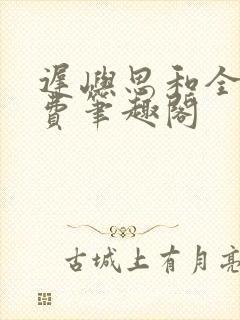 遲嶼思和全
費筆趣閣
古城上有月亮